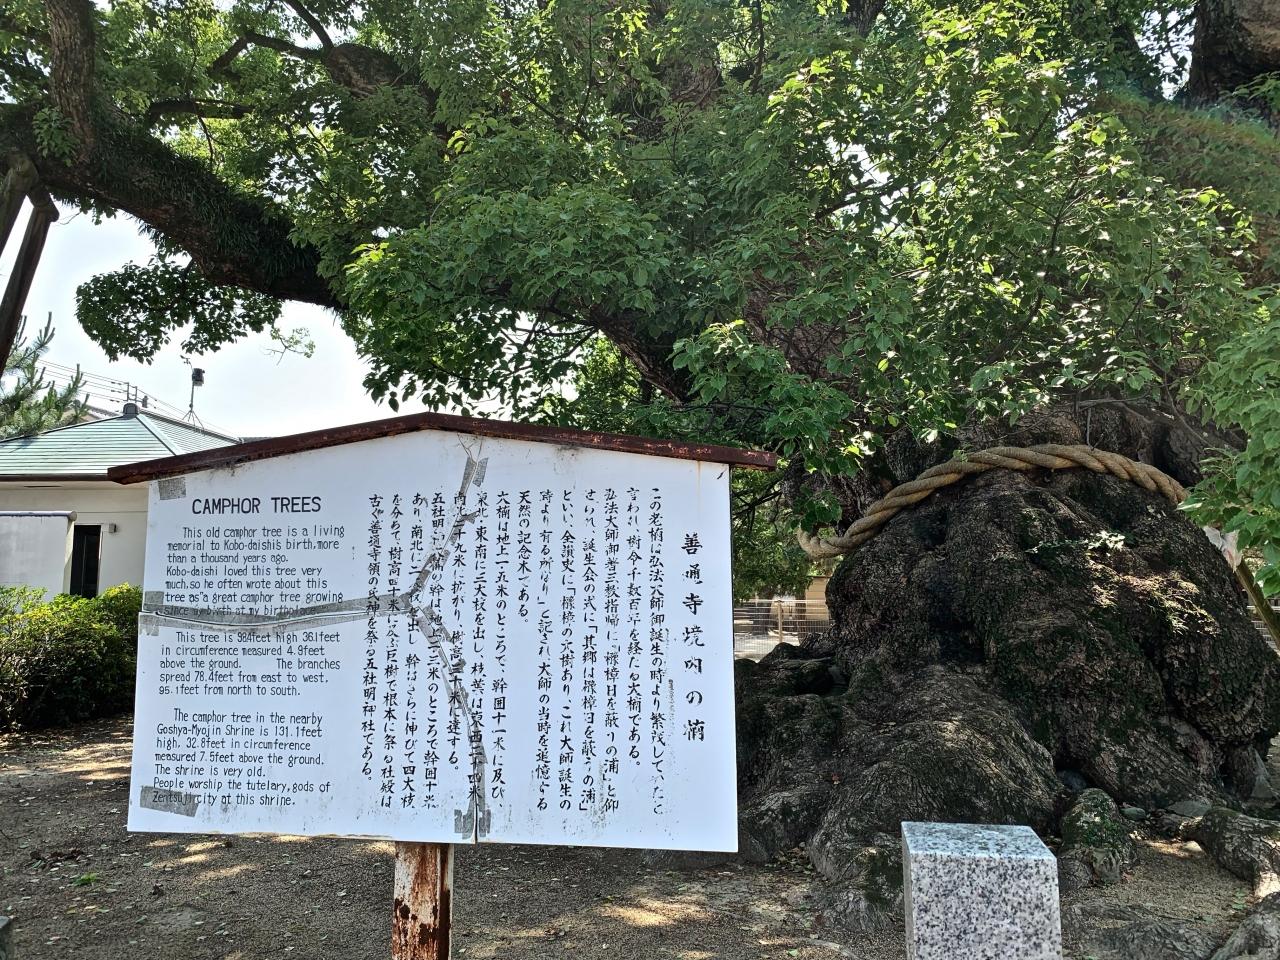 CAMPHOR TREES
This old camphor tree is a living
memorial to Kobo-daishi's birth,more
than a thousand years ago.
Kobo-daishi loved this tree very
much,so he often wrote about this
tree as"a great camphor tree growing
since my birth at my birthplace
This tree is 98.4feet high 36.1feet
in circumference measured 4.9feet
above the ground. The branches
spread 78.4feet from east to west,
95.1feet from north to south.
The camphor tree in the nearby
Goshya-Myojin Shrine is 131.1feet
high, 32.8feet in circumference
measured 7.5feet above the ground.
The shrine is very old.
People worship the tutelary,gods of
Zentsuji city at this shrine.
善通寺境内の楠
この老楠は弘法大師御誕生の時より繁茂して、いたと
言われ、樹令千数百年を経たる大楠である。
弘法大師御著三教指帰に「櫲樟日を蔽うの浦」と仰
せられ、誕生会の式に「其郷は櫲樟日を蔽うの浦」
といい、全讃史に「櫲樟の大樹あり、これ大師誕生の
時より有る所なり」と記され、大師の当時を追憶する
天然の記念木である。
大楠は地上一・五米のところで、幹囲十一米に及び、
東北、東南に三大枝を出し、枝葉は東西二十四米、
南北二十九米に拡がり、樹高三十米に達する。
五社明神の楠の幹は、地上二・三米のところで幹囲十米
あり、南北に二大枝を出し、幹はさらに伸びて四大枝
を分ちて、樹高四十米に余る。樹の根本に祭る社殿は
古く善通寺領の氏神を祭る五社明神社である。